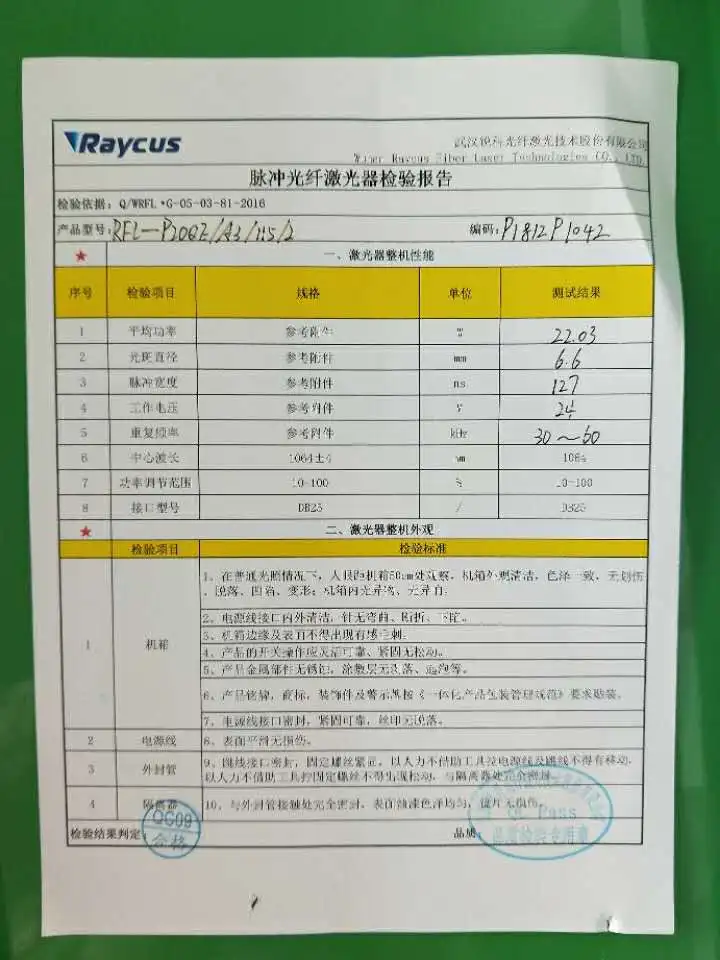 Raycus
武汉锐科光纤激光技术股份有限公司
Raycus Fiber Laser Technologies CO., Ltd.
脉冲光纤激光器检验报告
检验依据: Q/WRFL *G-05-03-81-2016
产品型号: RFL-P20QE/A3/1152
编码: P1812P1042
★ 一、激光器整机性能
序号 检验项目 规格 单位 测试结果
1 平均功率 参考附件 22.03
2 光斑直径 参考附件 mm 6.6
3 脉冲宽度 参考附件 ns 127
4 工作电压 参考附件 V 24
5 重复频率 参考附件 kHz 30~60
6 中心波长 1064±4 1064
7 功率调节范围 10-100 % 10-100
8 接口型号 DB25 / DB25
★ 二、激光器整机外观
检验项目 检验标准
1 机箱
1、在普通光照情况下，人眼距机箱50cm处观察，机箱外观清洁，色泽一致，无划伤
、脱落、凹陷、变形；机箱内无异物、无异音。
2、电源线接口内外清洁，针无弯曲、
3、机箱边缘及表面不得出现有感毛刺。
4、产品的开关操作应灵活可靠、紧固无松动。
5、产品金属部件无锈蚀，涂敷层无剥落、起泡等。
6、产品铭牌，商标，装饰件及警示牌按《一体化产品包装管理规范》要求贴装。
7、电源线接口密封，紧固可靠，丝印无脱落。
2 电源线 8、表面平滑无损伤。
3 外封管
9、跳线接口密封，固定螺丝紧固，以人力不借助工具拉电源线及跳线不得有移动，
以人力不借助工具拧固定螺丝不得出现松动，与隔离器处完全密封
4 隔离器 10、与外封管接触处完全密封，表面油漆色泽均匀，镜片无损伤。
检验结果判定:
QC09
合格
品质:
QC Pass
品质检验专用章